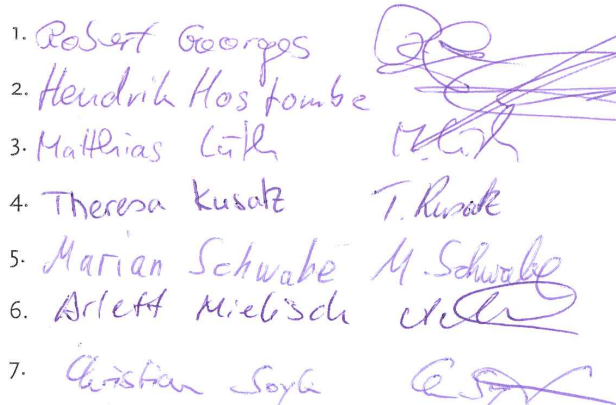 1. Robert Georges
2. Hendrik Hostombe
3. Matthias Lüth M. Lüth
4. Theresa Kusatz T. Kusatz
5. Marian Schwabe M. Schwabe
6. Arlett Mielisch
7. Christian